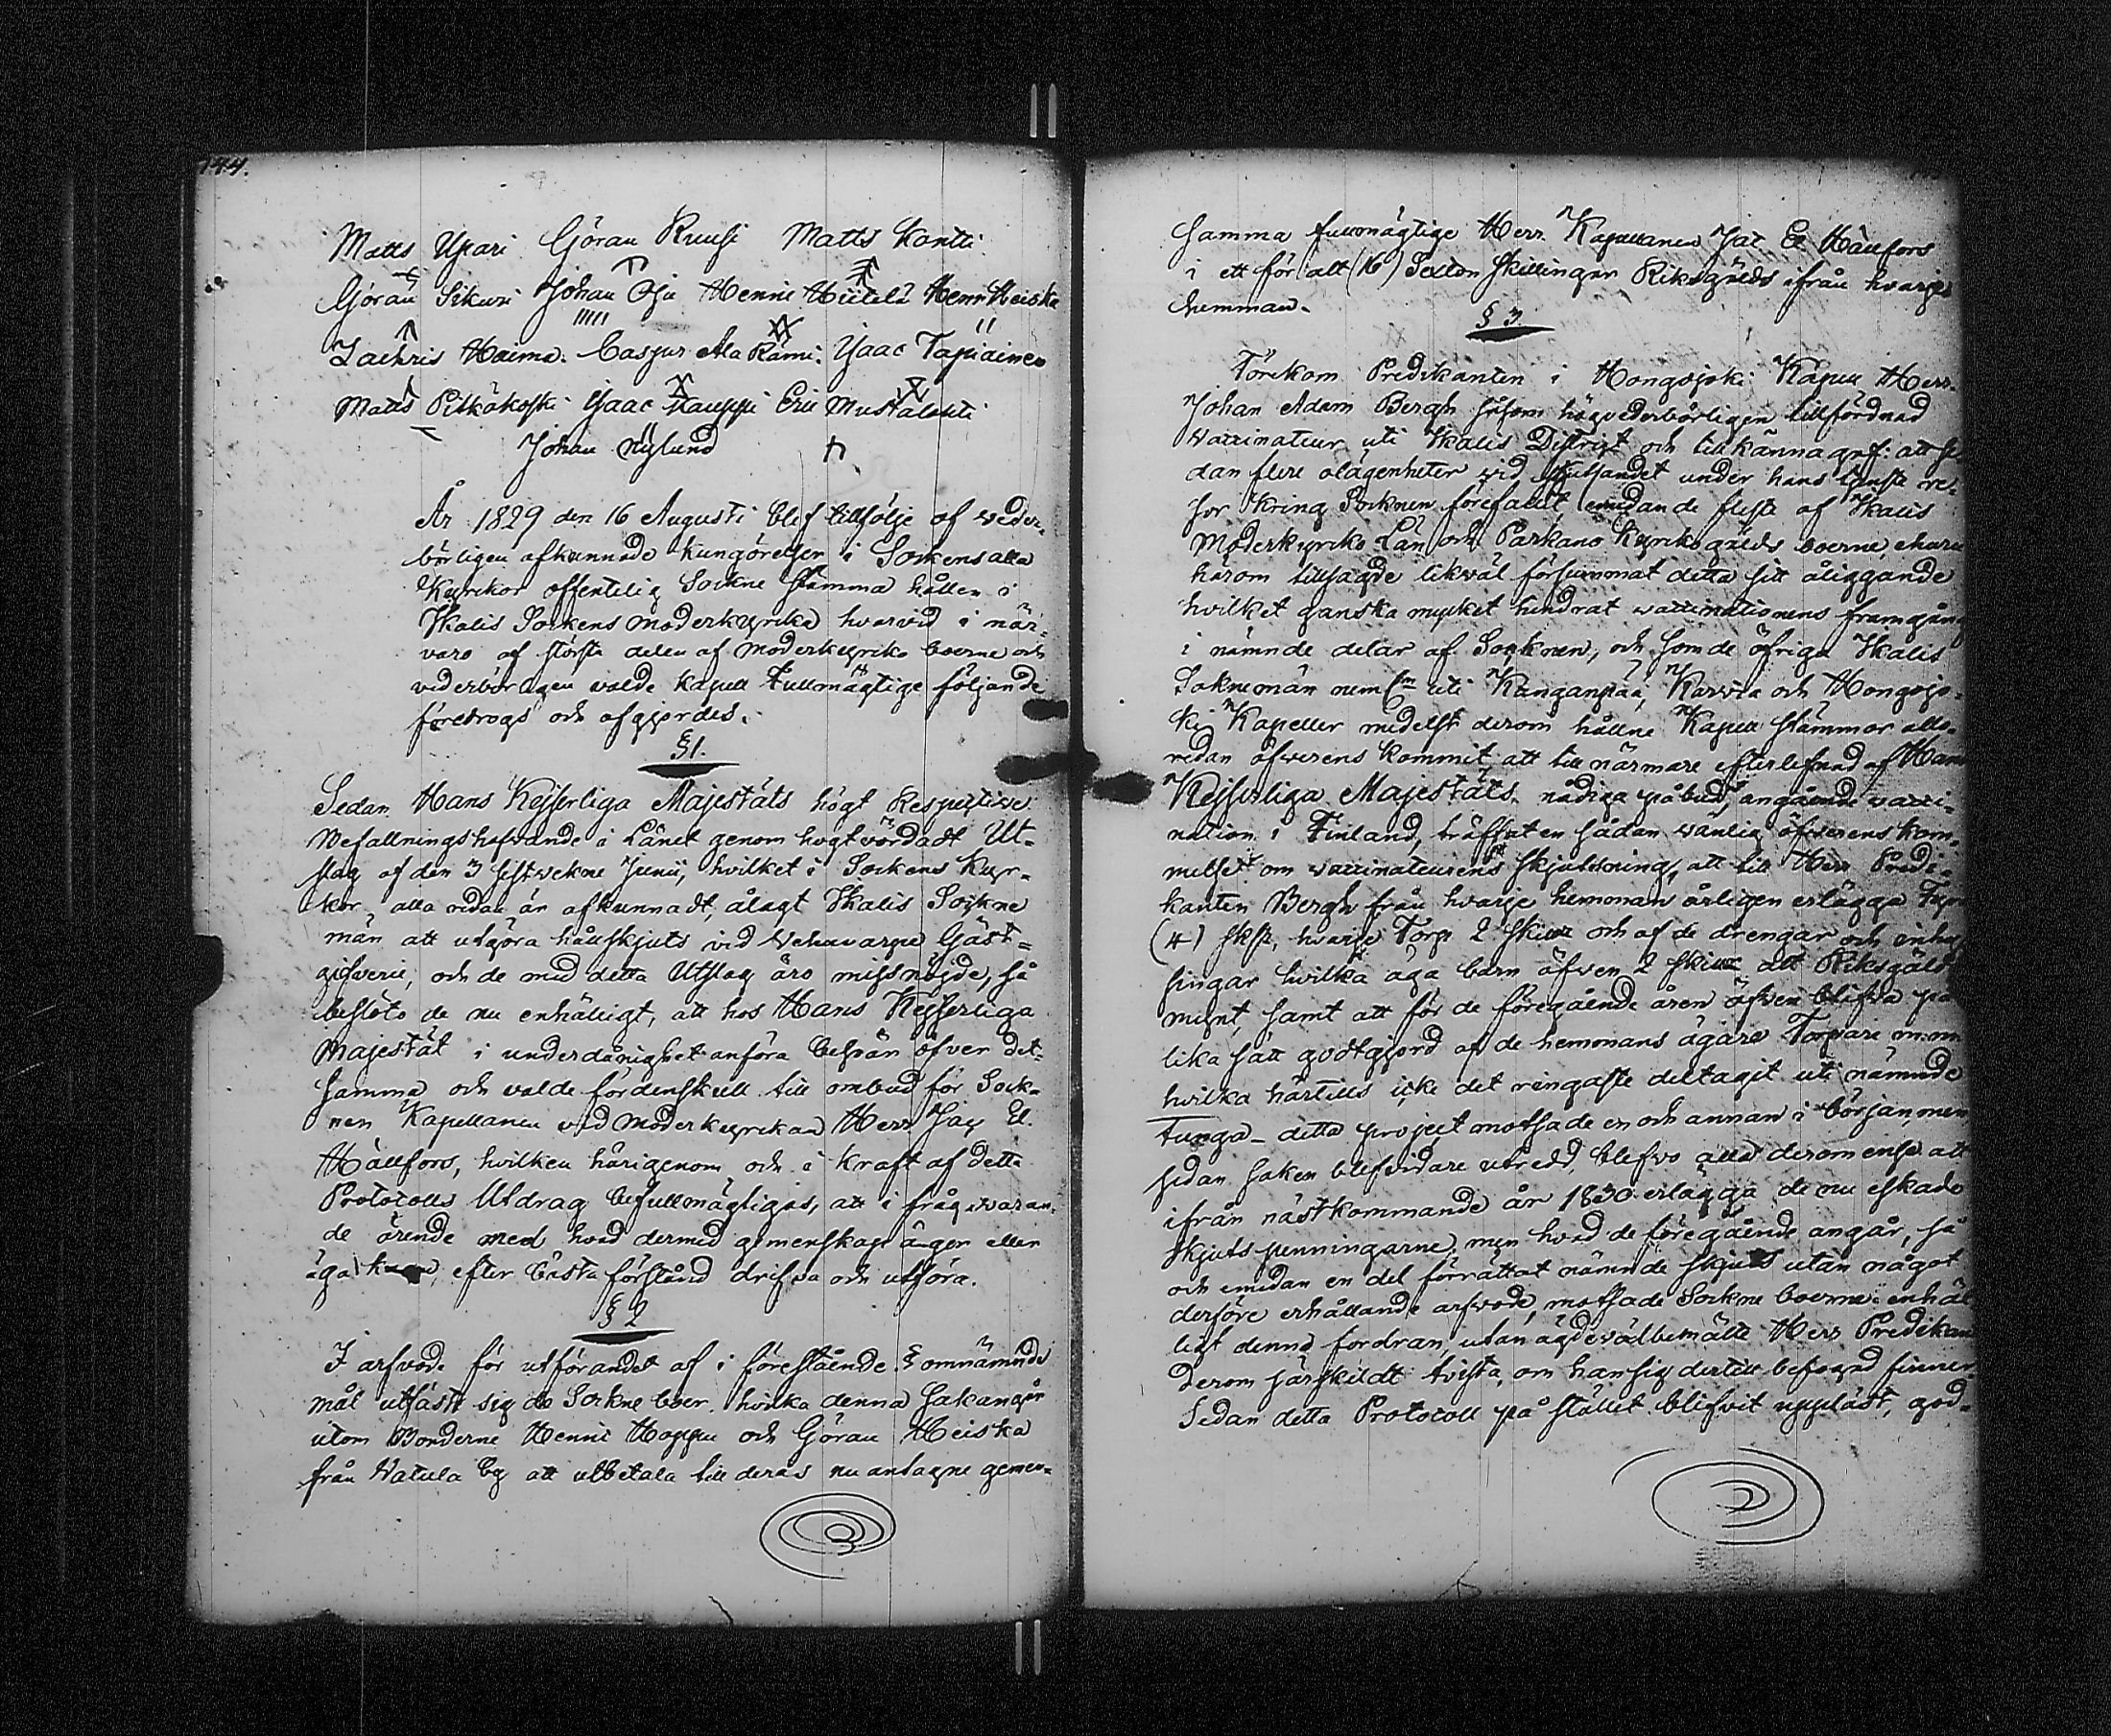 144.
Matts Upari Göran Ruusi Matts Kontti
Göran Sikuri Johan Oja Henric Hiitelä Henr: Heiska
Zachris Haima. Caspur Ala Rämi. Isaac Tapiainen
Matts Pitkäkoski Isaac Kauppi Eric Mustalahti
Johan Nylund
År 1829 den 16 Augusti blef tillfölje af veder-
börligen afkunnade kungörelser i Sockens alla
Kyrkor offentelig Sockne stämma hållen i
Ikalis Sockens moderkyrka hvarvid i när-
varo af största delen af moderkyrko boerne och
vederbörligen valde kapell Fullmägtige följande
föredrogs och afgjordes.
§ 1.
Sedan Hans Kejserliga Majestäts högt Respective
Befallningshafvande i Länet genom högtvördadt Ut-
slag af den 3 sistvekne Junii, hvilket i Sockens Kyr-
kor alla redan är afkunnadt, ålagt Ikalis Sockne
män att utgöra hållskjuts vid Vehuvarpe Gäst-
gifverie, och de med detta Utslag äro missnöjde, så
beslöto de nu enhälligt, att hos Hans Kejserliga
Majestät i underdånighet anföra besvär öfver det-
samma och valde fördenskull till ombud för Sock-
nen Kapellanen vid Moderkyrkan Herr Jac El.
Hällfors, hvilken härigenom och i kraft af detta
Protocolls Utdrag befullmägtigas, att i frågavaran-
de ärende med hvad dermed gemenskap äger eller
äga kan, efter bästa förstånd drifva och utföra.
§ 2
I arfvode för utförandet af i förestående § omnämnde
mål utfäste sig de Sockne boer, hvilka denna sak angår
utom Bönderne Henric Hoppu och Göran Heiska
från Vatula by att utbetala till deras nu antagne gemen-
samma fullmägtige Herr Kapellanen Jac El Hällfors
i ett för allt (16) Sexton Skillingar Riksgälds ifrån hvarje
hemman.
§ 3.
Förekom Predikanten i Hongojoki Kapell Herr
Johan Adam Bergh såsom högvederbörligen tillförordnad
vaccinateur uti Ikalis District och tillkännagaf: att se-
dan flere olägenheter vid skjutsandet under hans tjenste re-
sor kring Socknen förefallit emedan de fleste af Ikalis
Moderkyrko Län och Parkano Kyrkogälds boerne, ehuru
härom tillsagde likväl försummat detta sitt åliggande
hvilket ganska mycket hindrat vaccinationens framgång
i nämnde delar af Socknen, och som de öfriga Ikalis
Soknemän neml. uti Kangangää, Karvia och Hongojo-
ki Kapeller medelst derom hållne Kapell stämmor alla-
redan öfverens kommit att till närmare efterlefnad af Hans
Kejserliga Majestäts nådiga påbud, angående vacci-
nation i Finland, träffat en sådan vänlig öfverens kom-
melse om vaccinateurens skjutsning, att till Herr Predi-
kanten Bergh från hvarje hemman årligen erlägga Fyra
(4) sk, hvarje Torp 2 skill och af de drengar och inhy-
singar hvilka äga barn äfven 2 skill allt Riksgälds
mynt, samt att för de föregående åren äfven blifva på
lika sätt godtgjord af de hemmans ägare Torpare m:m
hvilka härtills icke det ringaste deltagit uti nämnde
tunga – detta project motsade en och annan i början, men
sedan saken blef vidare utredd, blefvo alla derom ense att
ifrån nästkommande år 1830 erlägga de nu eskade
skjutspenningarne, men hvad de föregående angår, så
och emedan en del förrättat nämnde skjuts utan något
derföre erhållande arfvode, motsade Sockne boerne enhäl
ligt denna fordran, utan ägde välbemälte Herr Predikan
derom särskildt tvista, om han sig dertill befogad finner
Sedan detta Protocoll på stället blifvit uppläst, god-